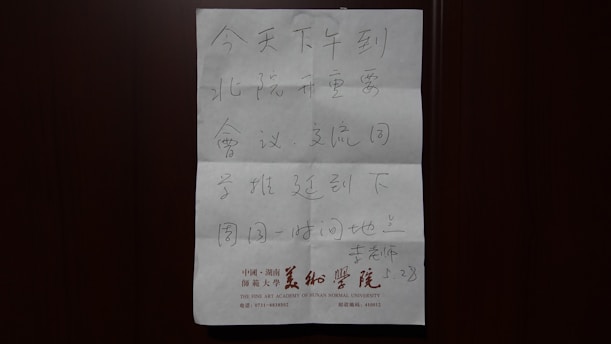 今天下午到
北院开重要
會议.交流同
学推延到下
周同一时间地点
李老师
5.28
中國·湖南
師範大學
美術學院
THE FINE ART ACADEMY OF HUNAN NORMAL UNIVERSITY
電話:0731-8828962 郵政編碼:410012